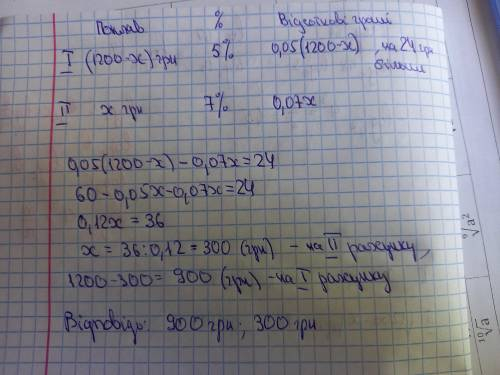 Поклав % Відсоткові гроші
I (1200-x) грн 5% 0,05(1200-x), на 24 грн більше
II x грн 7% 0,07x
0,05(1200-x) - 0,07x = 24
60 - 0,05x - 0,07x = 24
0,12x = 36
x = 36:0,12 = 300 (грн) - на II рахунку,
1200-300 = 900 (грн) - на I рахунку
Відповідь: 900 грн; 300 грн